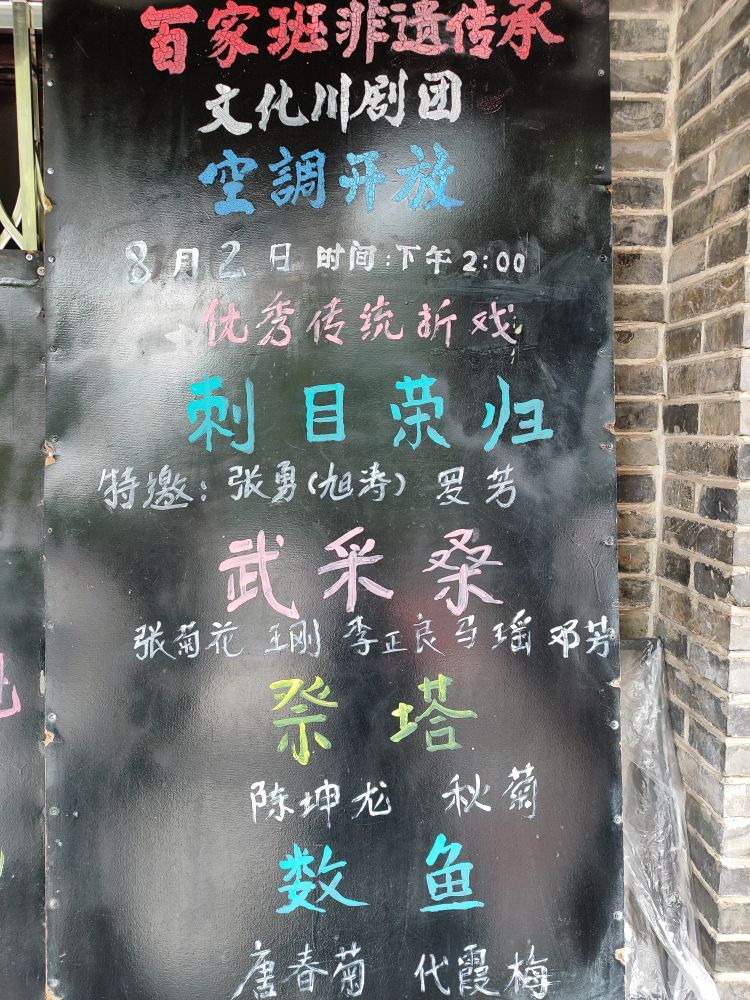 百家班非遗传承
文化川剧团
空調开放
8月2日 时间:下午2:00
优秀传统折戏
刺目荣归
特邀:张勇(旭涛) 罗芳
武采桑
张菊花 王刚 李正良 马瑶 邓芳
祭塔
陈坤龙 秋菊
数鱼
唐春菊 代霞梅